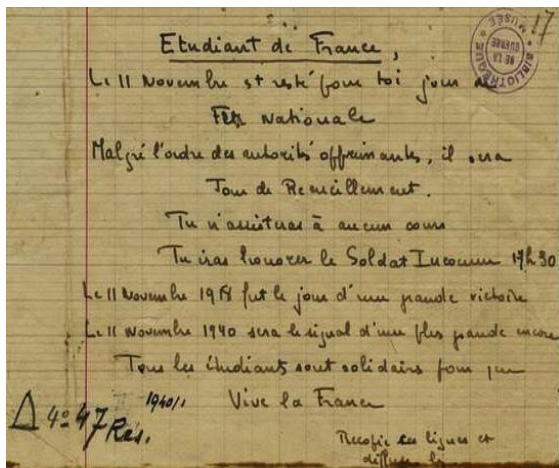 17
BIBLIOTHÈQUE * MUSÉE
DE LA
GUERRE
Etudiant de France,
Le 11 Novembre est resté pour toi jour de
Fête Nationale
Malgré l'ordre des autorités opprimantes, il sera
Jour de Recueillement.
Tu n'assisteras à aucun cours
Tu iras honorer le Soldat Inconnu 17h30
Le 11 Novembre 1918 fut le jour d'une grande victoire
Le 11 Novembre 1940 sera le signal d'une plus grande encore
Tous les étudiants sont solidaires pour que
Vive la France
1940/1
Δ 4º 47 Rés.
Recopie ces lignes et
diffuse les